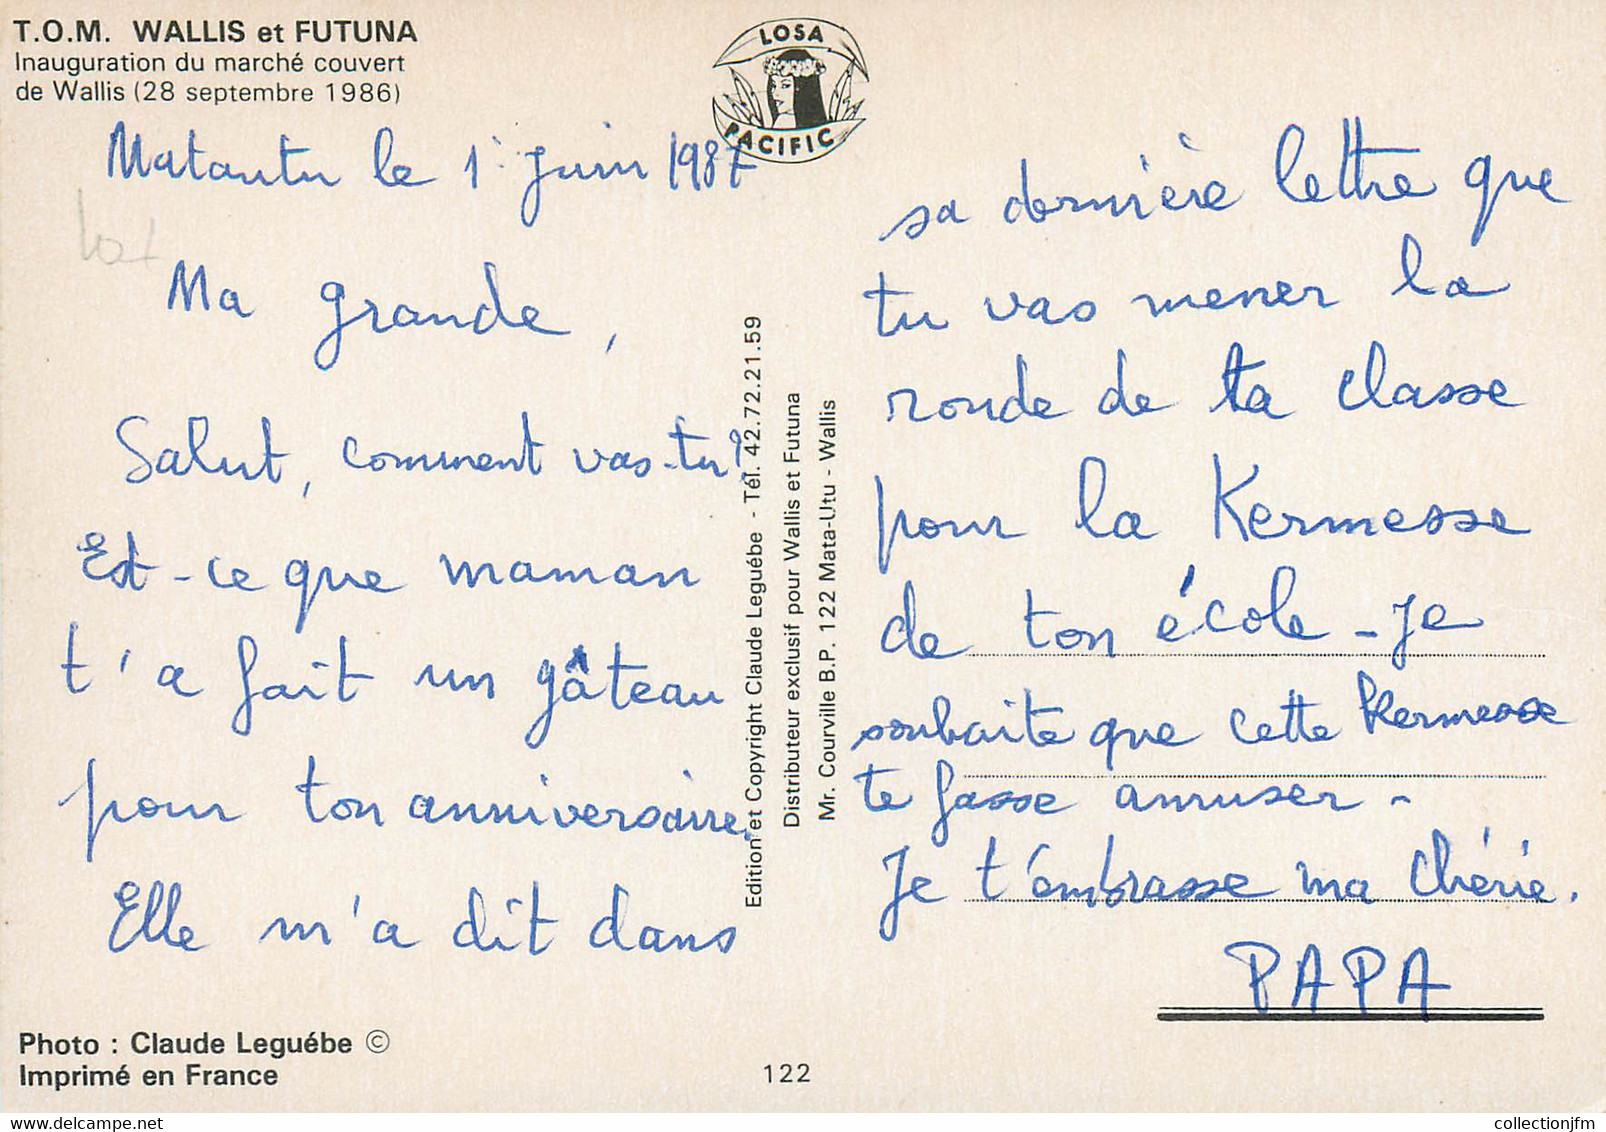 T.O.M. WALLIS et FUTUNA
Inauguration du marché couvert
de Wallis (28 septembre 1986)
LOSA
PACIFIC
Matautu le 1er Juin 1987
Ma grande,
Salut, comment vas-tu?
Est-ce que maman
t'a fait un gâteau
pour ton anniversaire.
Elle m'a dit dans
sa dernière lettre que
tu vas mener la
ronde de ta classe
pour la Kermesse
de ton école - Je
souhaite que cette Kermesse
te fasse amuser -
Je t'embrasse ma Chérie.
PAPA
Edition et Copyright Claude Leguébe - Tél. 42.72.21.59
Distributeur exclusif pour Wallis et Futuna
Mr. Courville B.P. 122 Mata-Utu - Wallis
Photo : Claude Leguébe ©
Imprimé en France
122
collectionjfm